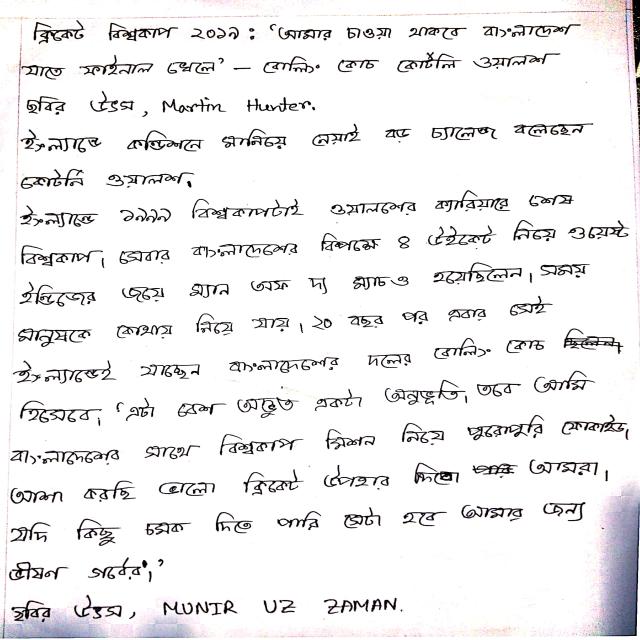 ক্রিকেট বিশ্বকাপ ২০১৯ : 'আমার চাওয়া থাকবে বাংলাদেশ
যাতে ফাইনাল খেলে' – বোলিং কোচ কোর্টনি ওয়ালশ
ছবির উৎস, Martin Hunter.
ইংল্যান্ডে কন্ডিশনে মানিয়ে নেয়াই বড় চ্যালেঞ্জ বলেছেন
কোর্টনি ওয়ালশ।
ইংল্যান্ডে ১৯৯৯ বিশ্বকাপটাই ওয়ালশের ক্যারিয়ারে শেষ
বিশ্বকাপ। সেবার বাংলাদেশের বিপক্ষে ৪ উইকেট নিয়ে ওয়েস্ট
ইন্ডিজের জয়ে ম্যান অফ দ্য ম্যাচও হয়েছিলেন। সময়
মানুষকে কোথায় নিয়ে যায়। ২০ বছর পর এবার সেই
ইংল্যান্ডেই যাচ্ছেন বাংলাদেশের দলের বোলিং কোচ
হিসেবে। 'এটা বেশ অদ্ভুত একটা অনুভূতি, তবে আমি
বাংলাদেশের সাথে বিশ্বকাপ মিশন নিয়ে পুরোপুরি ফোকাইড।
আশা করছি ভালো ক্রিকেট উপহার দিবো আমরা।
যদি কিছু চমক দিতে পারি সেটা হবে আমার জন্য
ভীষণ গর্বের।'
ছবির উৎস, MUNIR UZ ZAMAN.